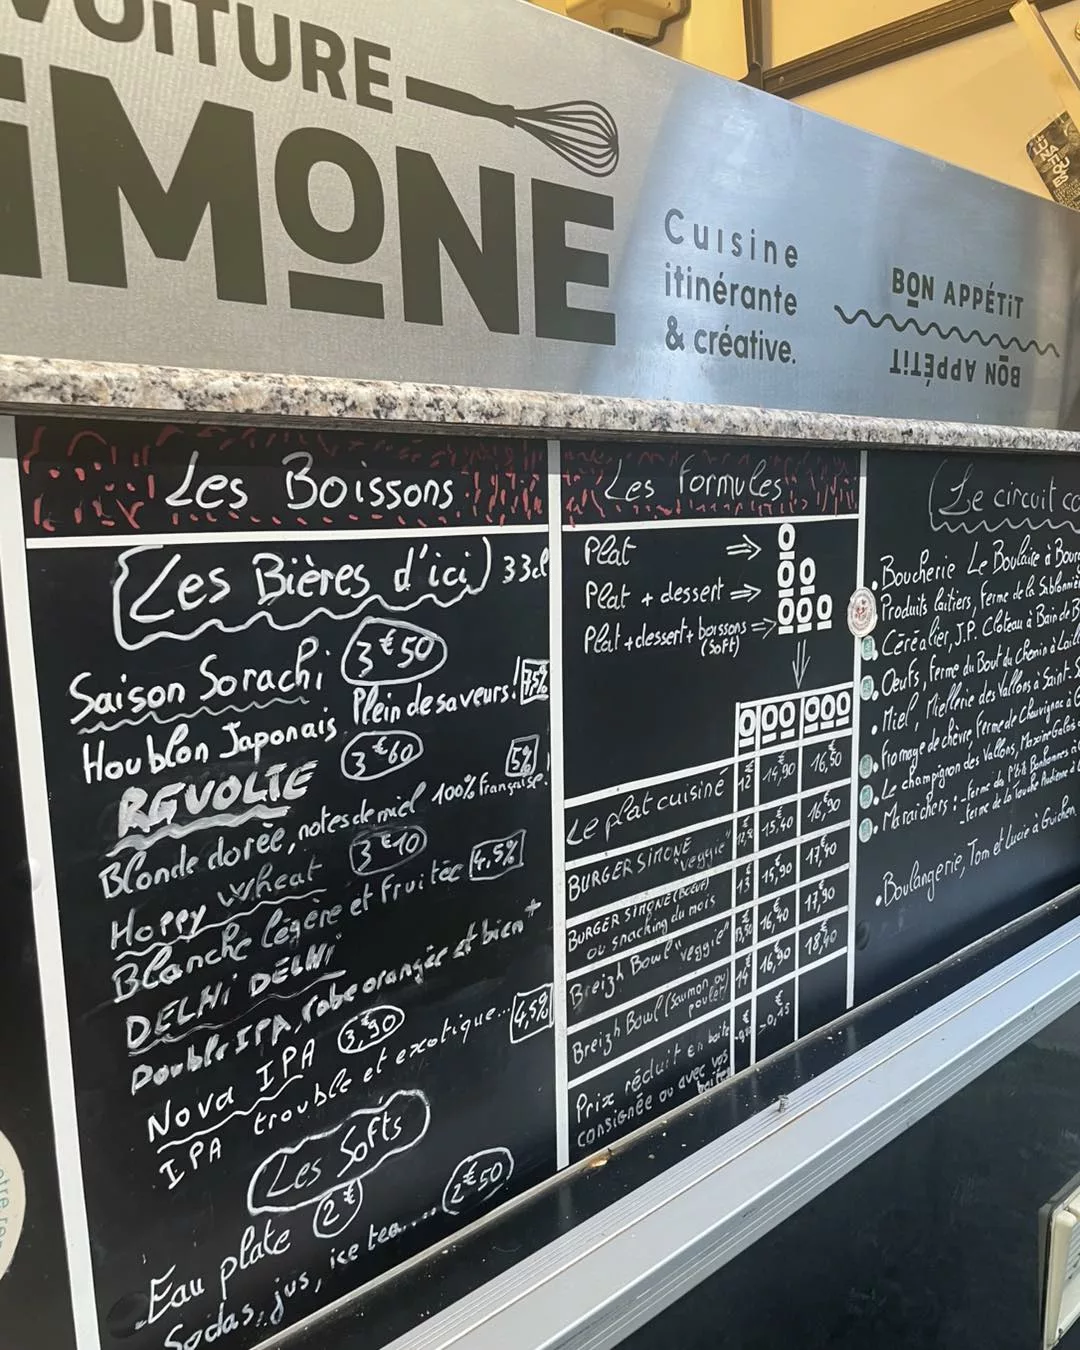 VOiTURE
SiMONE
Cuisine
itinérante
& créative.
BON APPÉTiT
BON APPÉTiT
Les Boissons
(Les Bières d'ici) 33cl
Saison Sorachi 3€50
Houblon Japonais Plein de saveurs! 7,5%
REVOLTE 3€60
Blonde dorée, notes de miel 100% Française! 5%
Hoppy wheat 3€70
Blanche légère et fruitée 4,5%
DELHi DELHi
Double IPA, robe orangée et bien +
Nova IPA 3,€90
IPA trouble et exotique... 4,5%
Les Softs
Eau plate 2€
Sodas, jus, ice tea.... 2€50
Les formules
Plat => O
Plat + dessert => OO
Plat + dessert + boissons => OOO
(soft)
O OO OOO
Le plat cuisiné 12€ 14,90 16,50
BURGER SIMONE "veggie" 15,40 16,90
BURGER SIMONE (BOEUF) 13 15,90 17,40
ou snacking du mois
Breizh Bowl "veggie" 13,50 16,40 17,90
Breizh Bowl (saumon ou 14 16,90 18,40
poulet)
Prix réduit en boîte -0,15
consignée ou avec vos
boîtes
(Le circuit
• Boucherie Le Boulaire à
• Produits laitiers, Ferme de la
• Céréalier, J.P. Cloteau à Bain de
• Oeufs, Ferme du Bout du Chemin à
• Miel, Miellerie des Vallons à Saint-
• Fromage de chèvre Ferme de Chauvignac à
• Le champignon des Vallons,
• Maraîchers : - ferme des
- ferme de la Touche
• Boulangerie, Tom et Lucie à Guichen